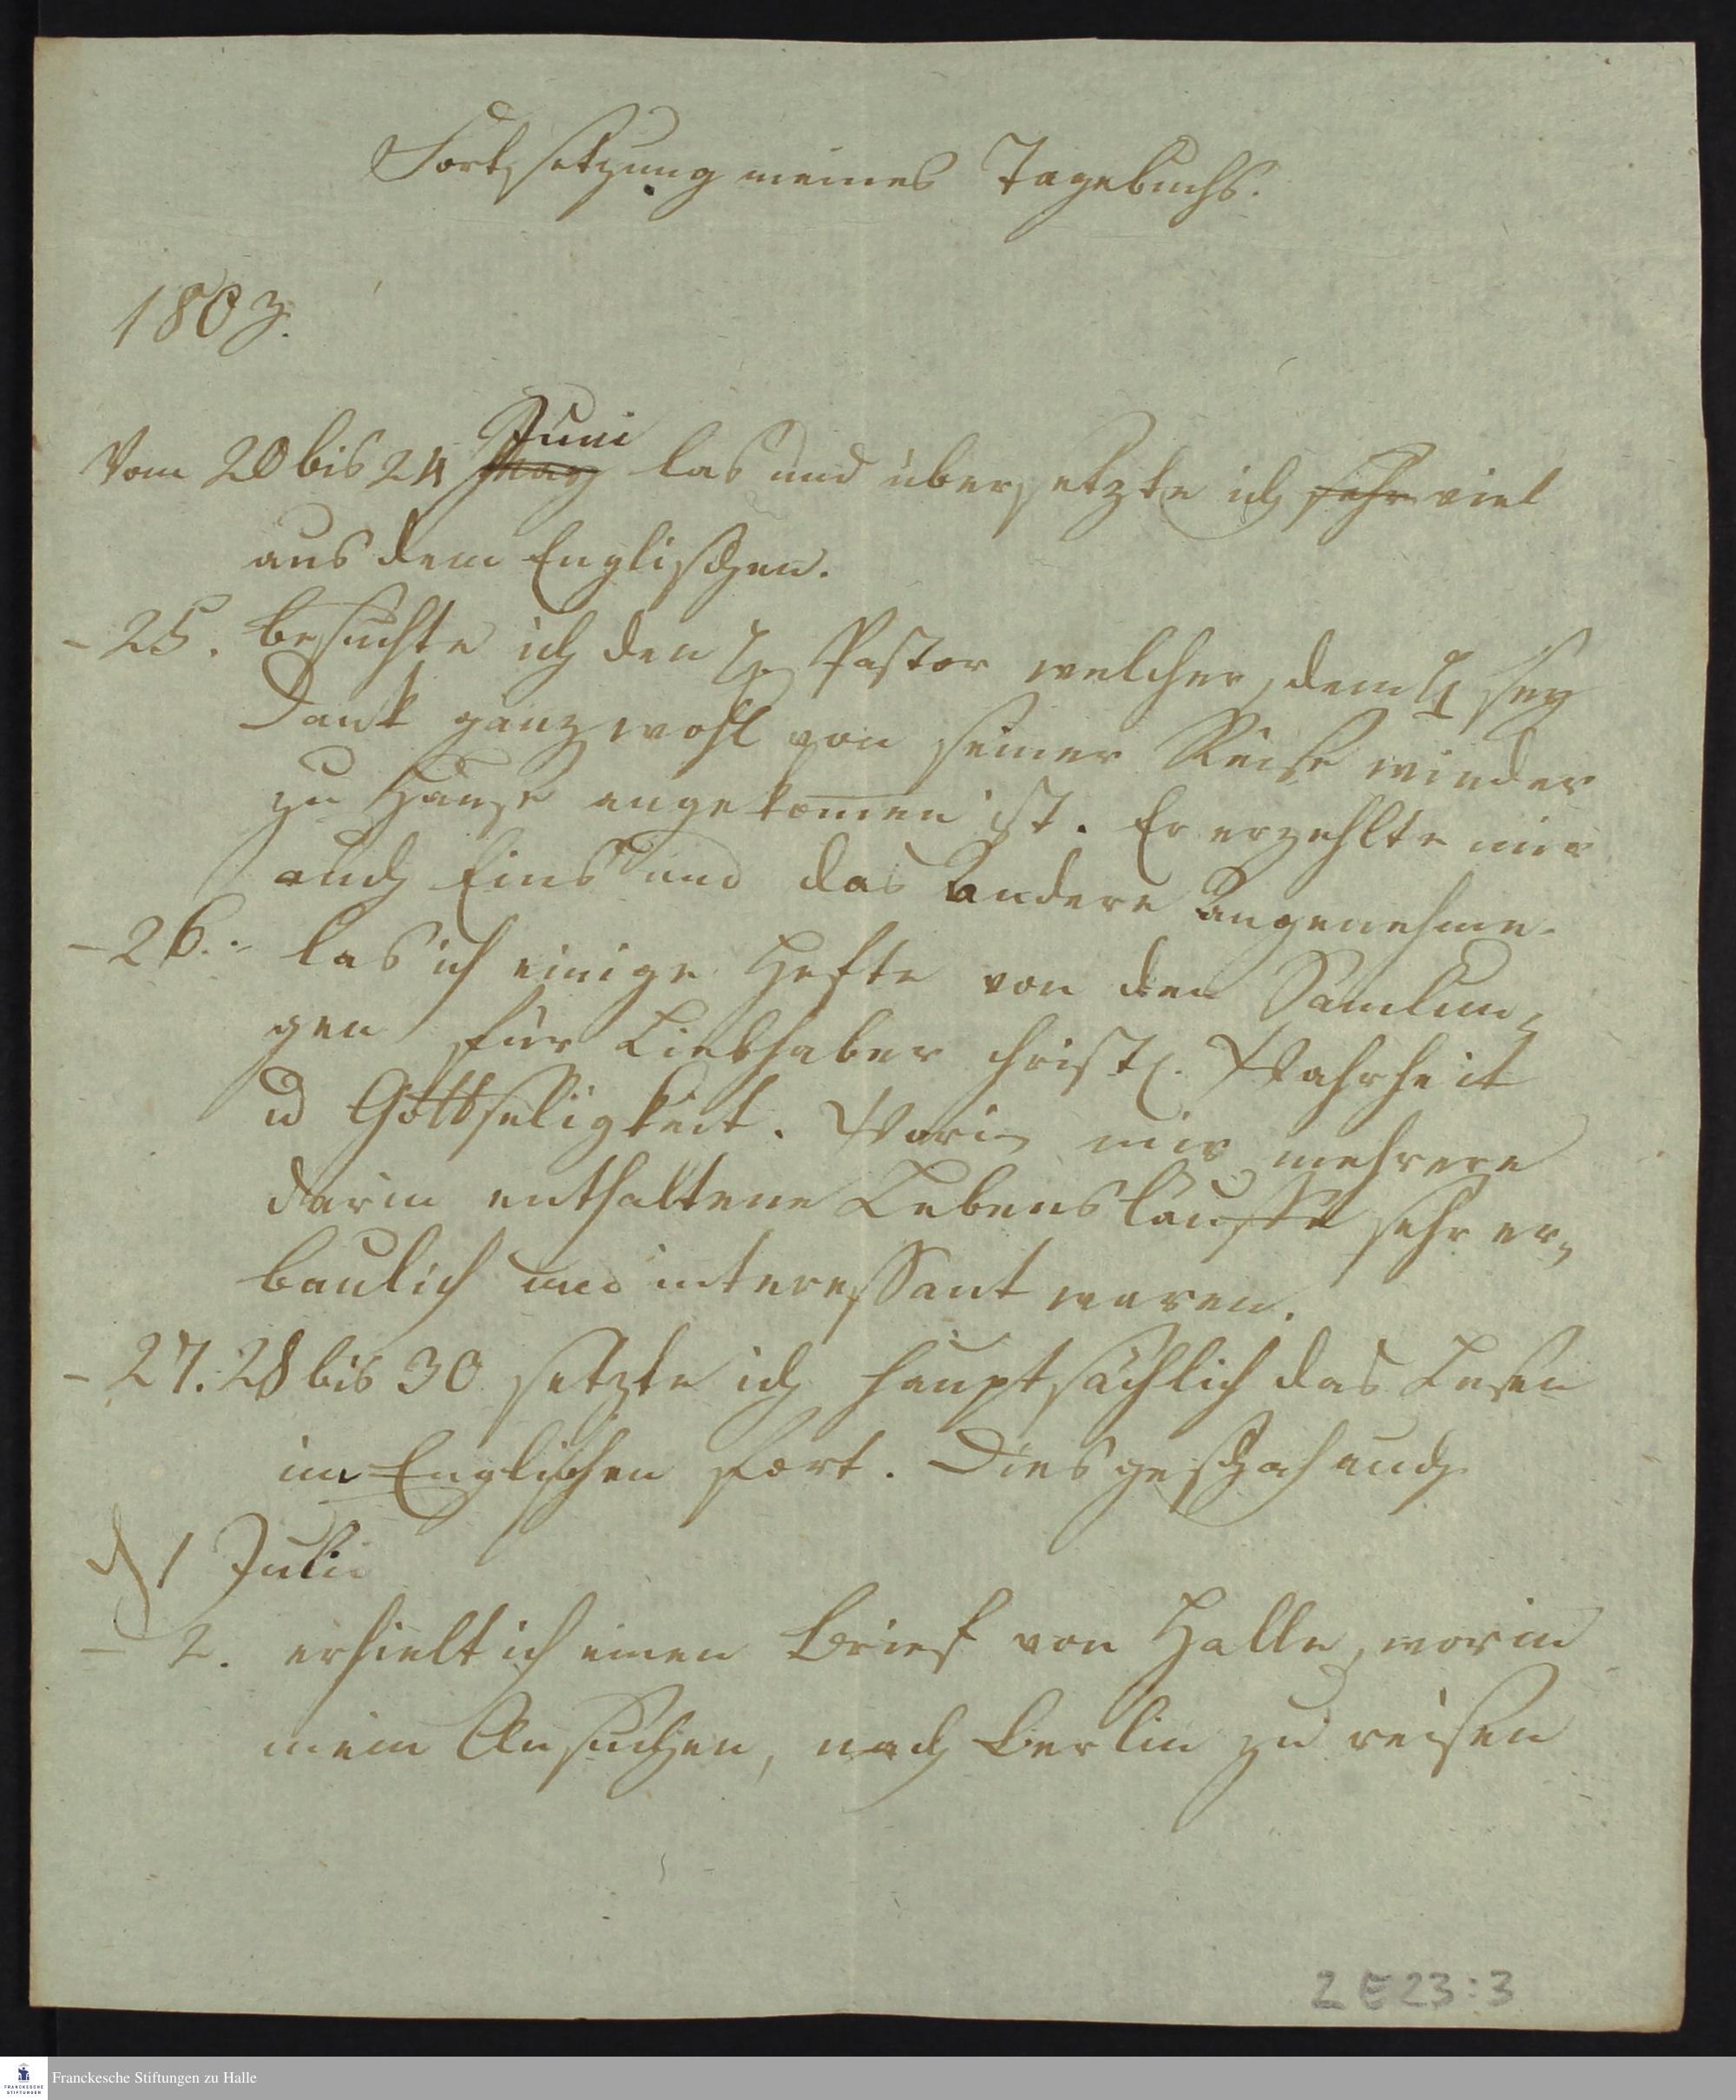 Fortsetzung meines Tagebuchs.
1803.
Juni
Vom 20 bis 24 May las und übersetzte ich sehr viel
aus dem Englischen.
- 25. besuchte ich den H. Pastor welcher, dem H sey
Dank ganz wohl von seiner Reise wieder
zu Hause angekom̅en ist. Er erzehlte mir
auch Eins und das Andere Angenehme.
- 26. las ich einige Hefte von den Sam̅lun-
gen für Liebhaber christl. Wahrheit
u Gottseligkeit. Worin mir mehrere
darin enthaltene Lebensläuffe sehr er-
baulich und interessant waren.
- 27. 28 bis 30 setzte ich hauptsächlich das Lesen
im Englischen fort. Dies geschah auch
d 1 Julii
- 2. erhielt ich einen Brief von Halle, worin
mein Ansuchen, nach Berlin zu reisen
2 E 23:3
FRANCKESCHE STIFTUNGEN
Franckesche Stiftungen zu Halle